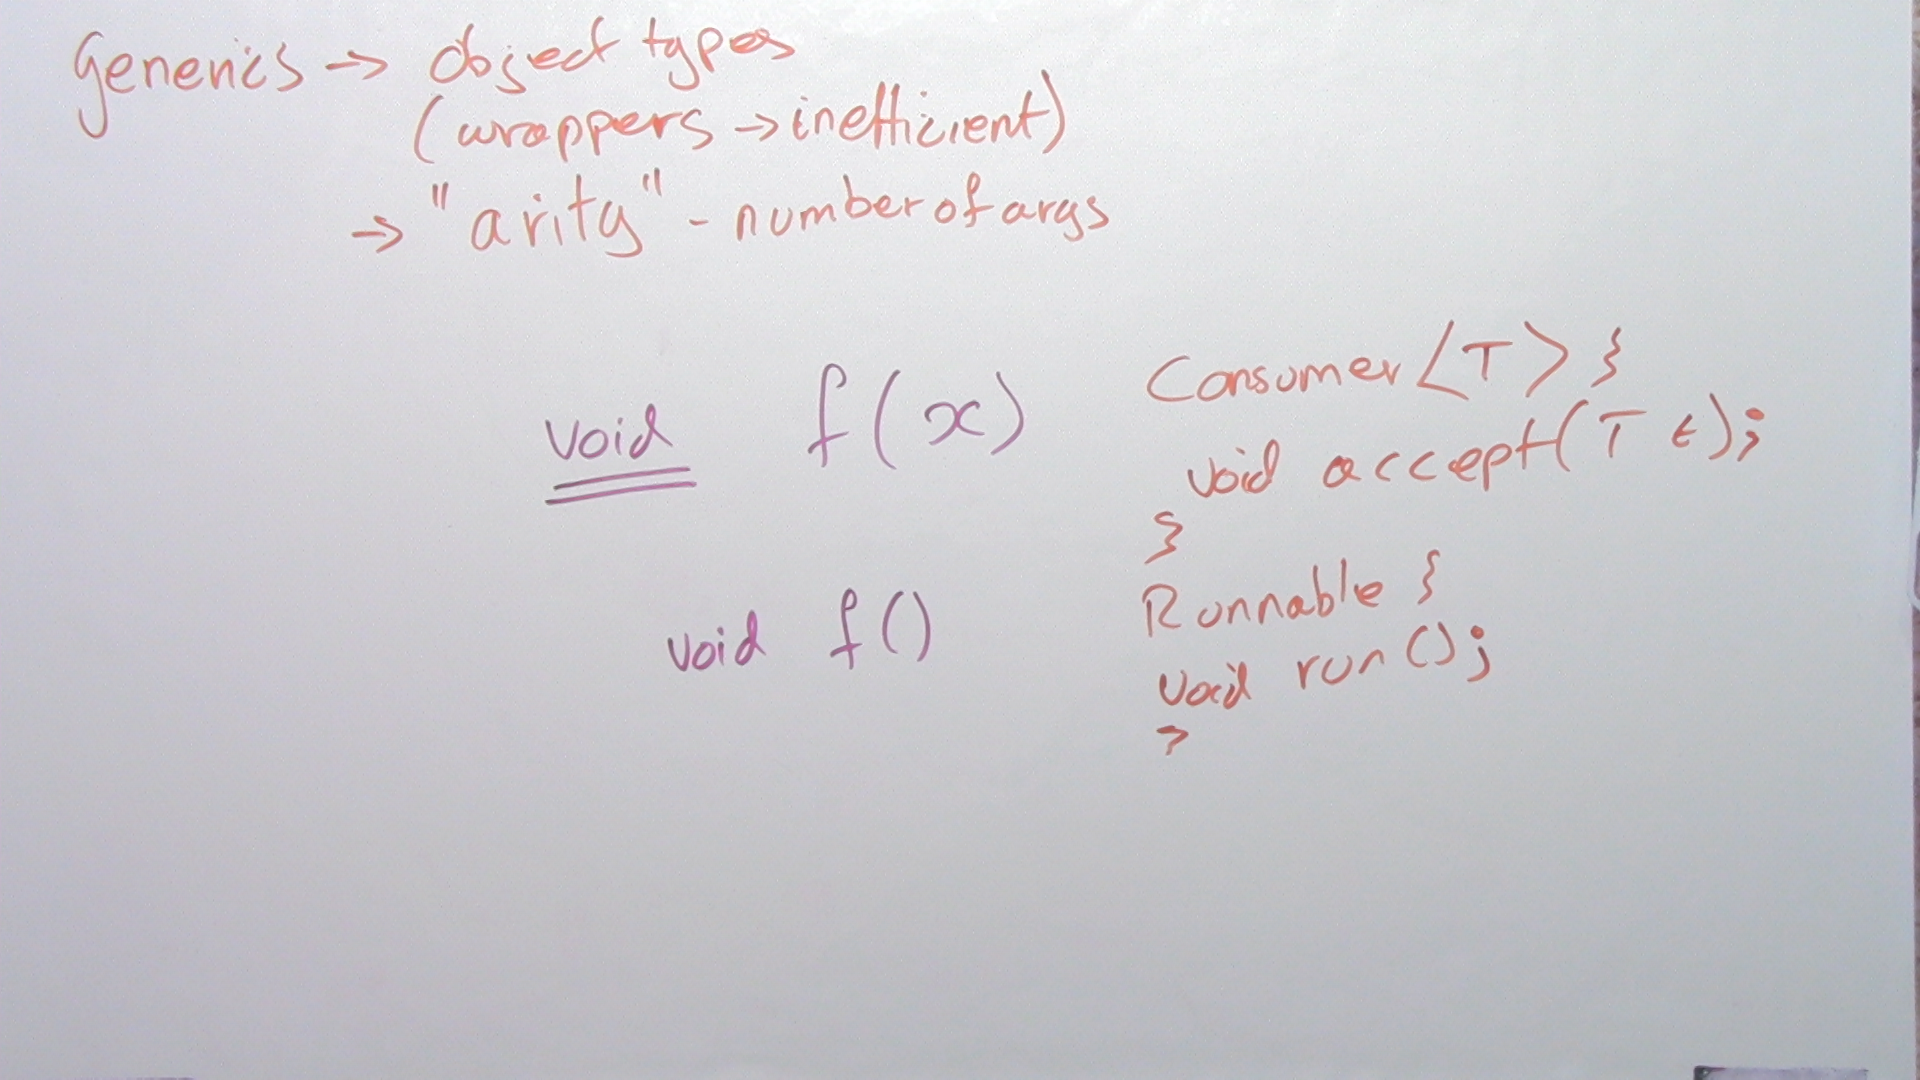 Generics → object types
(wrappers → inefficient)
→ "arity" - number of args
void f(x)
void f()
Consumer<T> {
void accept(T t);
}
Runnable {
void run();
}